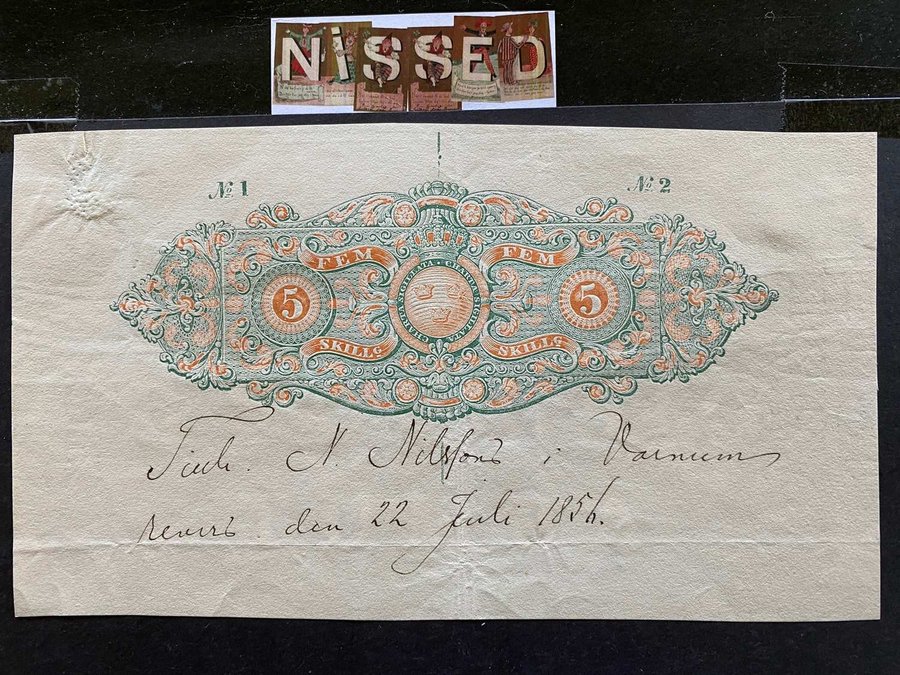 NiSSED
№ 1
№ 2
FEM FEM
5 5
SKILLG SKILLG
N. Nilssons i Varnum
revers den 22 Juli 1854.